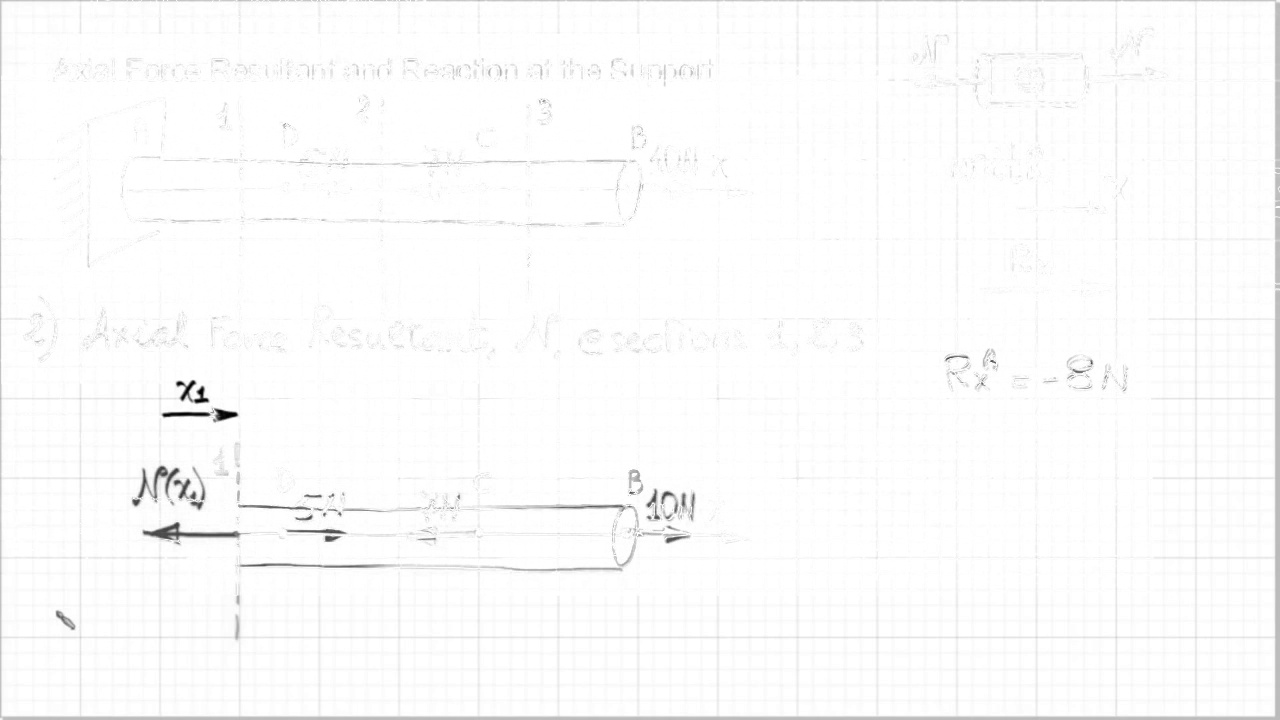 Axial Force Resultant and Reaction at the Support
N N
1 2 3
D C B
5N 7N 10N x
x
2) Axial Force Resultant, N, @ sections 1, 2, 3
Rx^A = -8N
x1
1
N(x1) D C B
5N 7N 10N